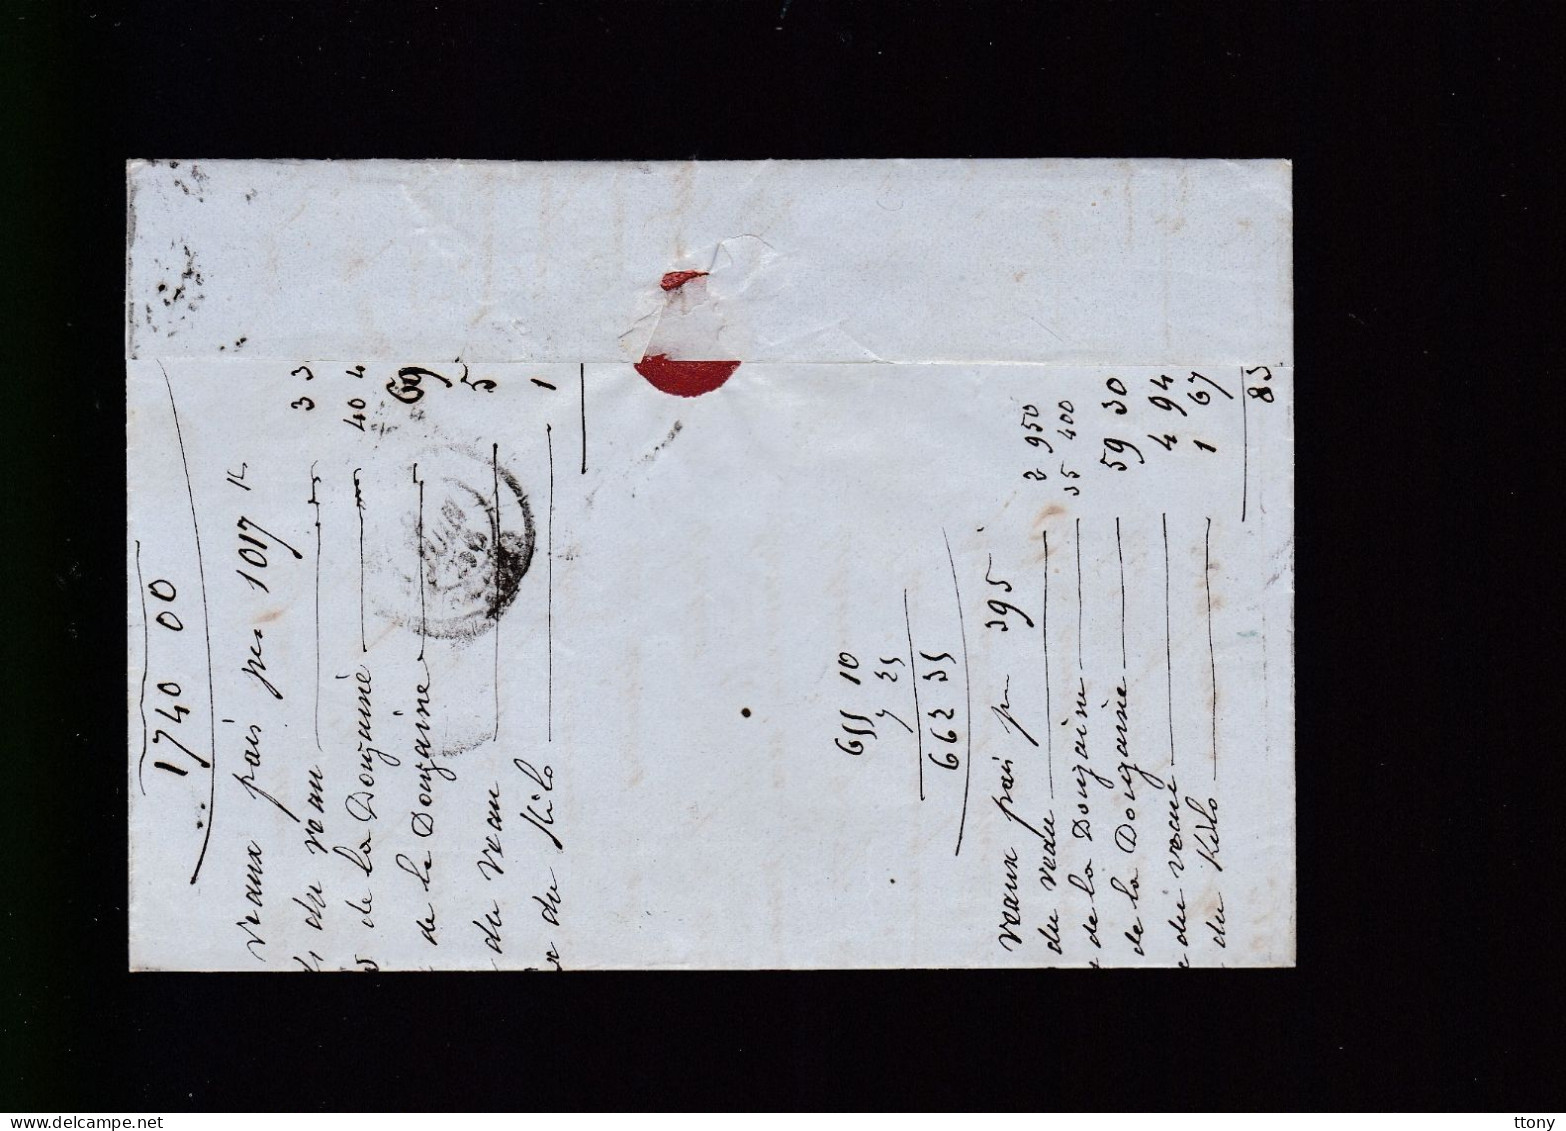 1740 00
veaux pais pes 1017 K
du veau 3 3
de la Douzaine 40 4
de la Douzaine 69
du veau 5
du Kilo 1
655 10
7 25
662 35
veaux pais pes 395
du veau 2 950
de la Douzaine 35 400
de la Douzaine 59 30
du veau 4 94
du Kilo 1 67
83
www.delcampe.net
ttony